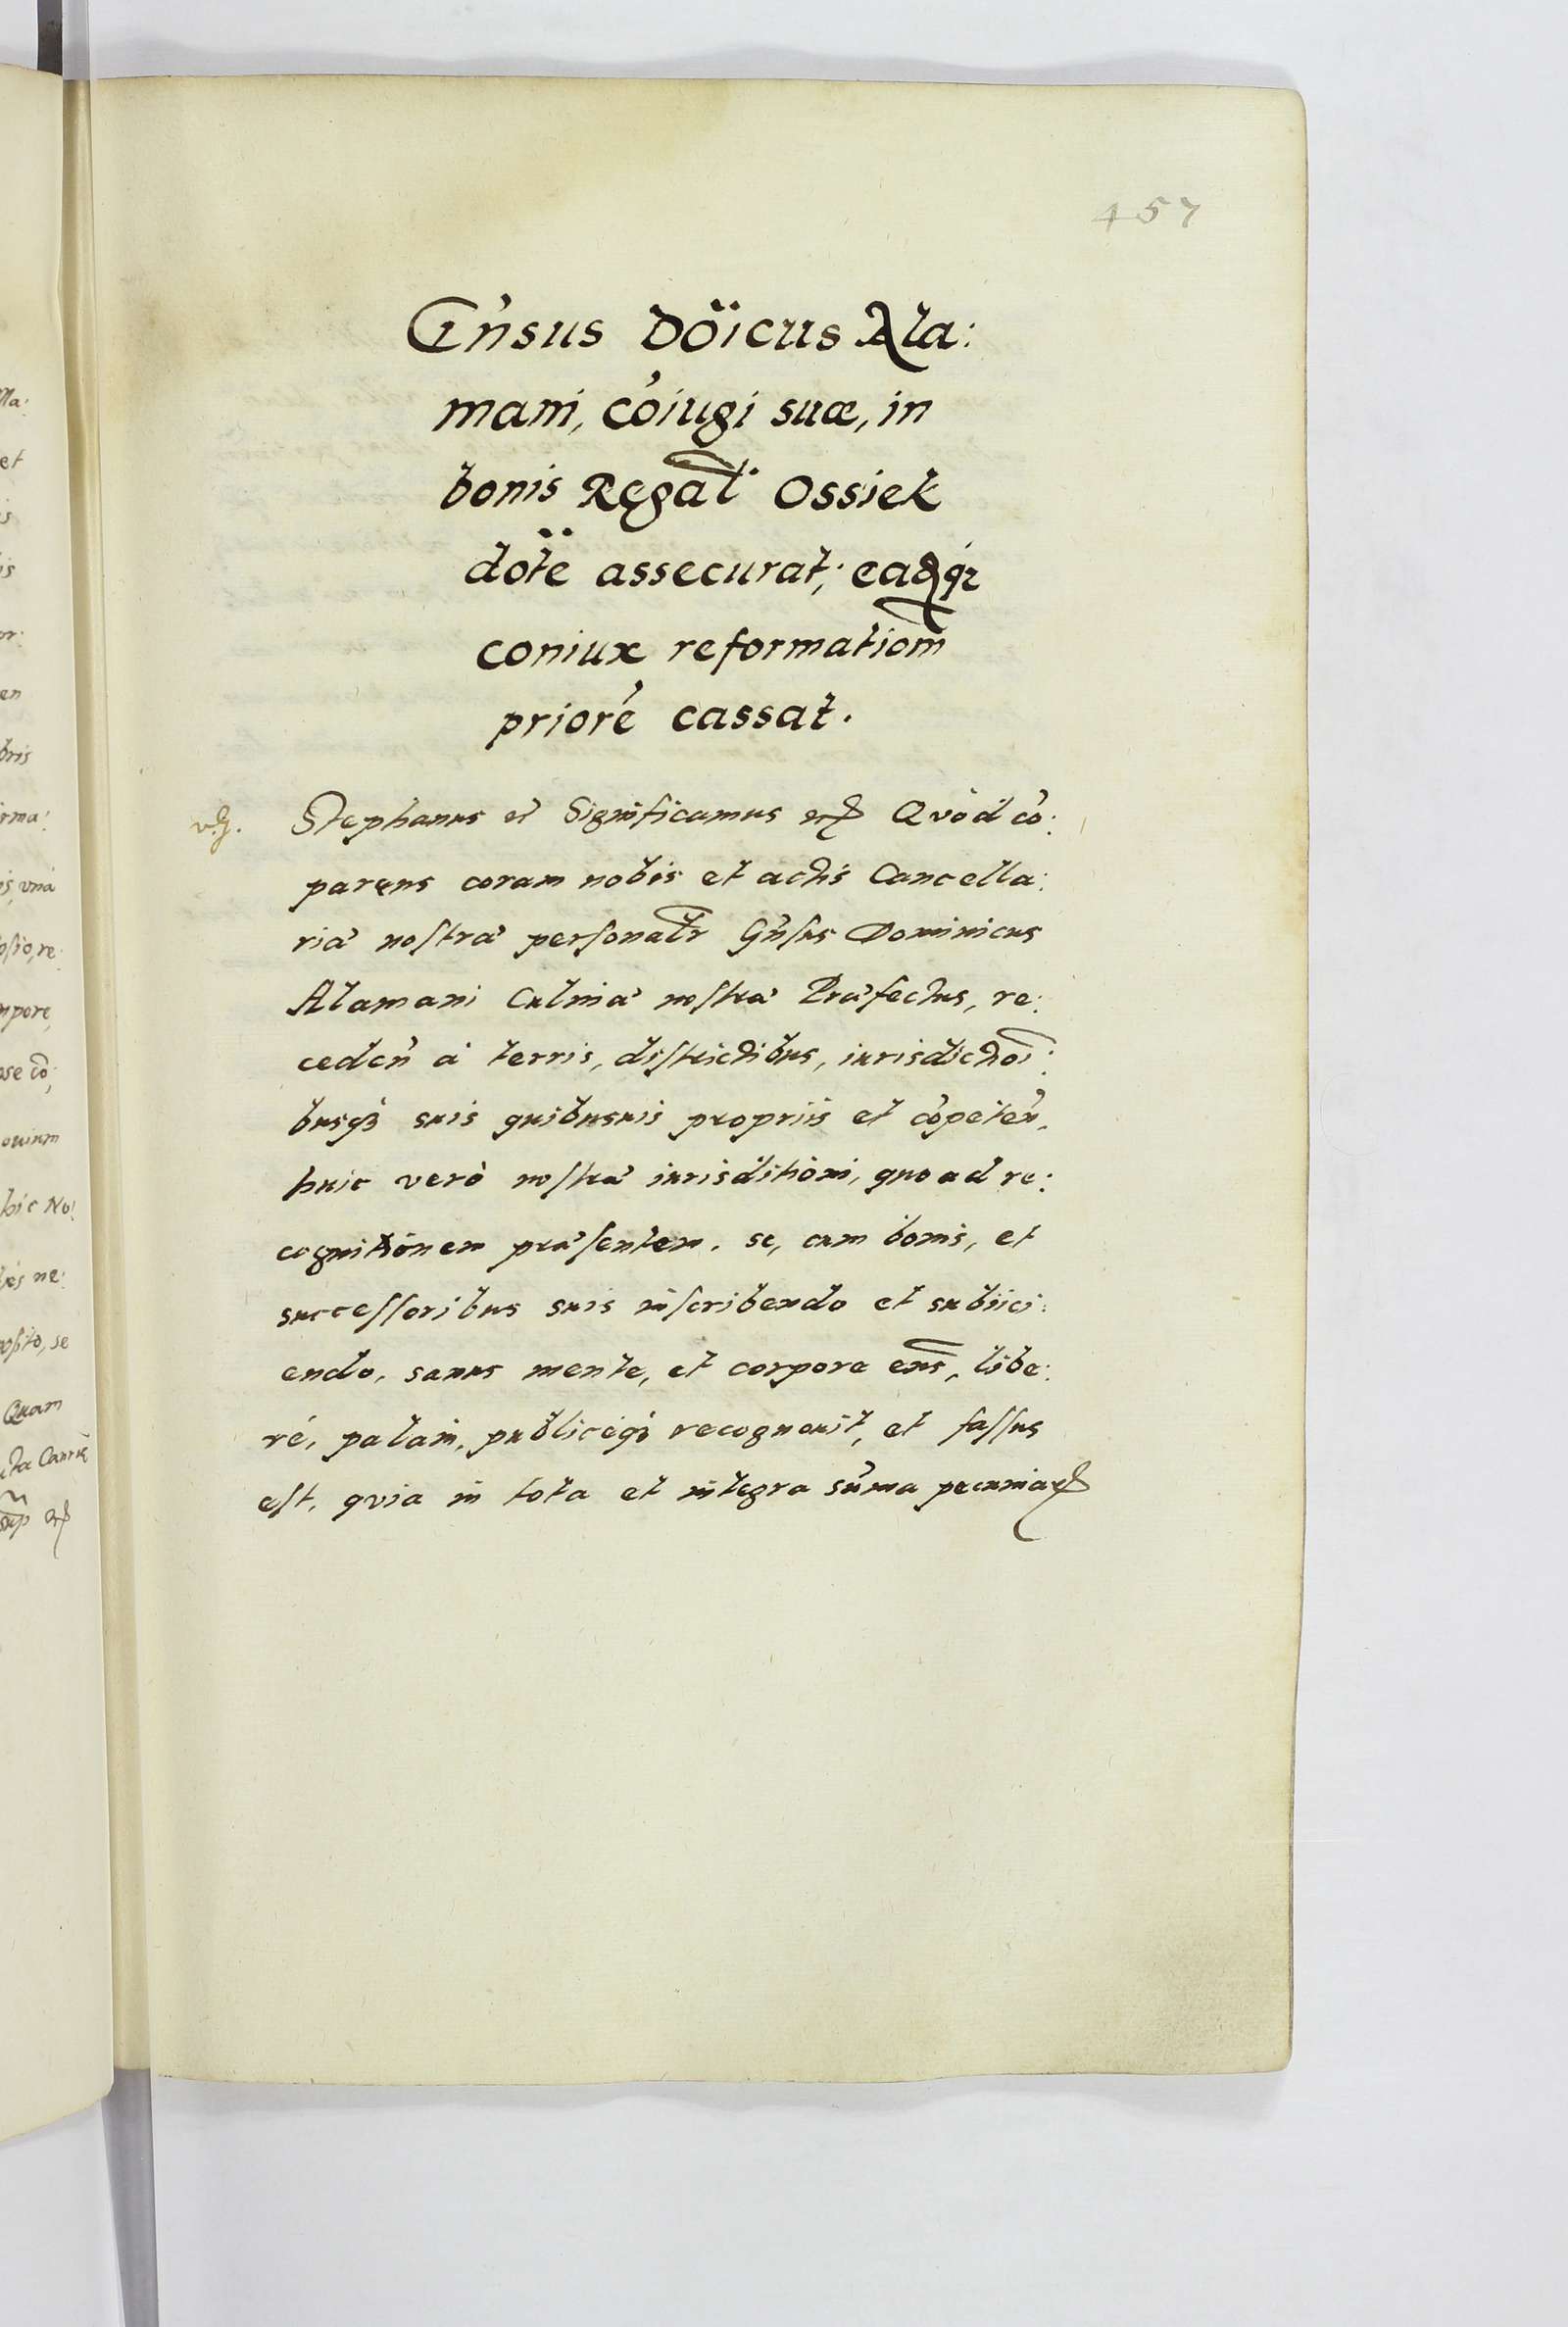 457
Gn̄sus Doīcus Ala:
mani, cōiugi suæ, in
bonis Regal̄ Ossiek
dotē assecurat; eadq́ꝫ
coniux reformatiom̄
priorē cassat.
Stephanus etc Significamus etc Quòd cō:
parens coram nobis et actis Cancella:
riæ nostræ personal̄r Gn̄sus Dominicus
Alamani Culinæ nostræ Præfectus, re:
ceden̄ à terris, districtibus, iurisdictioī:
busqꝫ suis quibusuis propriis et cōpeten̄,
huic verò nostræ iurisditioni, quoad re:
cognitionem præsentem, se, cum bonis, et
successoribus suis inscribendo et subiici:
endo, sanus mente, et corpore exn̄s, libe:
rè, palàm, publicéqꝫ recognouit, et fassus
est, quia in tota et integra sūma pecuniaꝝ